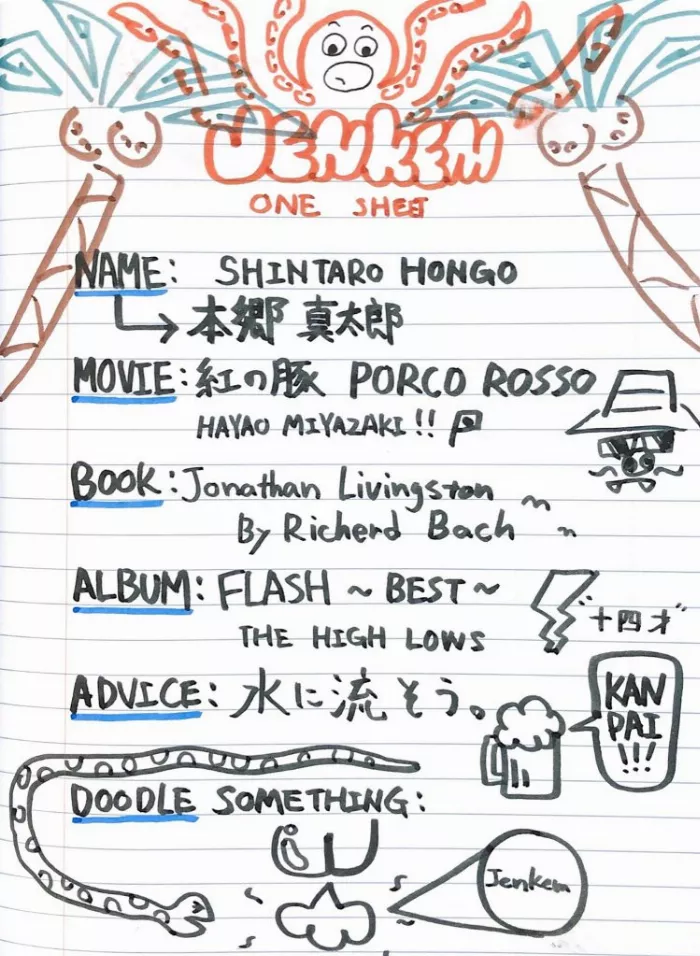 JENKEM
ONE SHEET
NAME: SHINTARO HONGO
本郷 真太郎
MOVIE: 紅の豚 PORCO ROSSO
HAYAO MIYAZAKI!!
BOOK: Jonathan Livingston
By Richerd Bach
ALBUM: FLASH ~ BEST ~
THE HIGH LOWS
十四才
ADVICE: 水に流そう。
KAN
PAI
!!!
DOODLE SOMETHING:
Jenkem